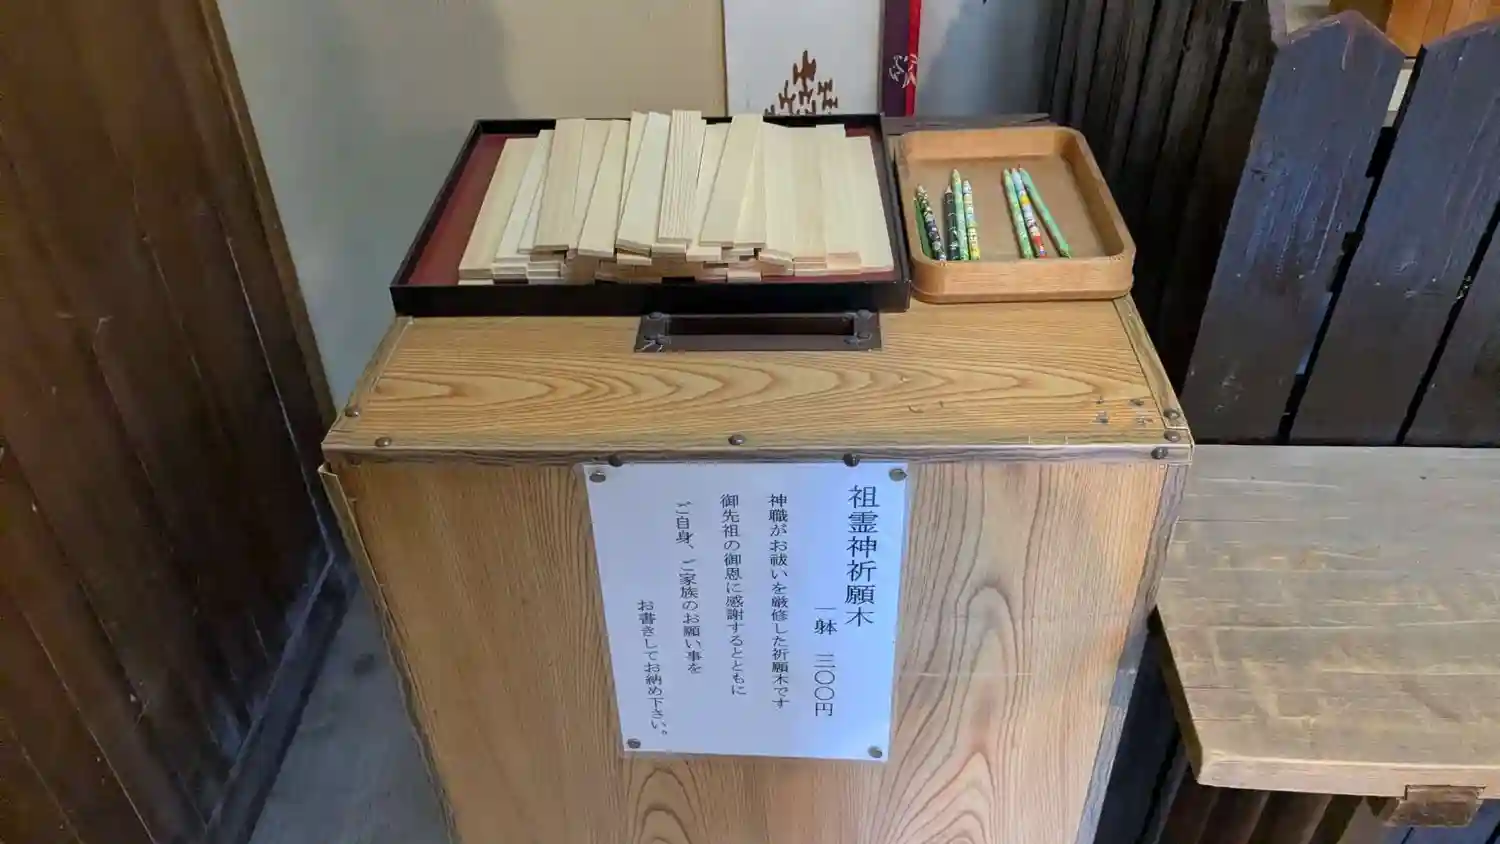 祖霊神祈願木
一躰 三〇〇円
神職がお祓いを厳修した祈願木です
御先祖の御恩に感謝するとともに
ご自身、ご家族のお願い事を
お書きしてお納め下さい。